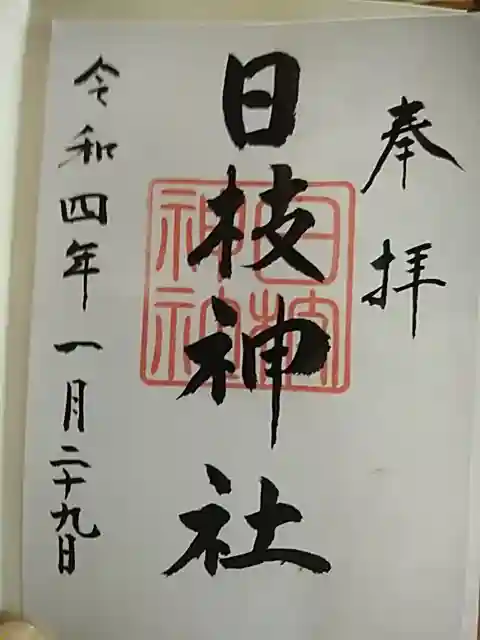 奉拝
日枝神社
日枝
神社
令和四年一月二十九日